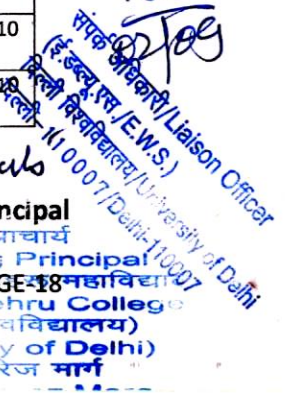 10
02/09
10
संपर्क अधिकारी/Liaison Officer
(ई.डब्ल्यू.एस./E.W.S.)
दिल्ली विश्वविद्यालय/University of Delhi
110007/Delhi-110007
ncipal
ाचार्य
Principal
GE-18
महाविद्या
ehru College
विद्यालय)
y of Delhi)
मार्ग